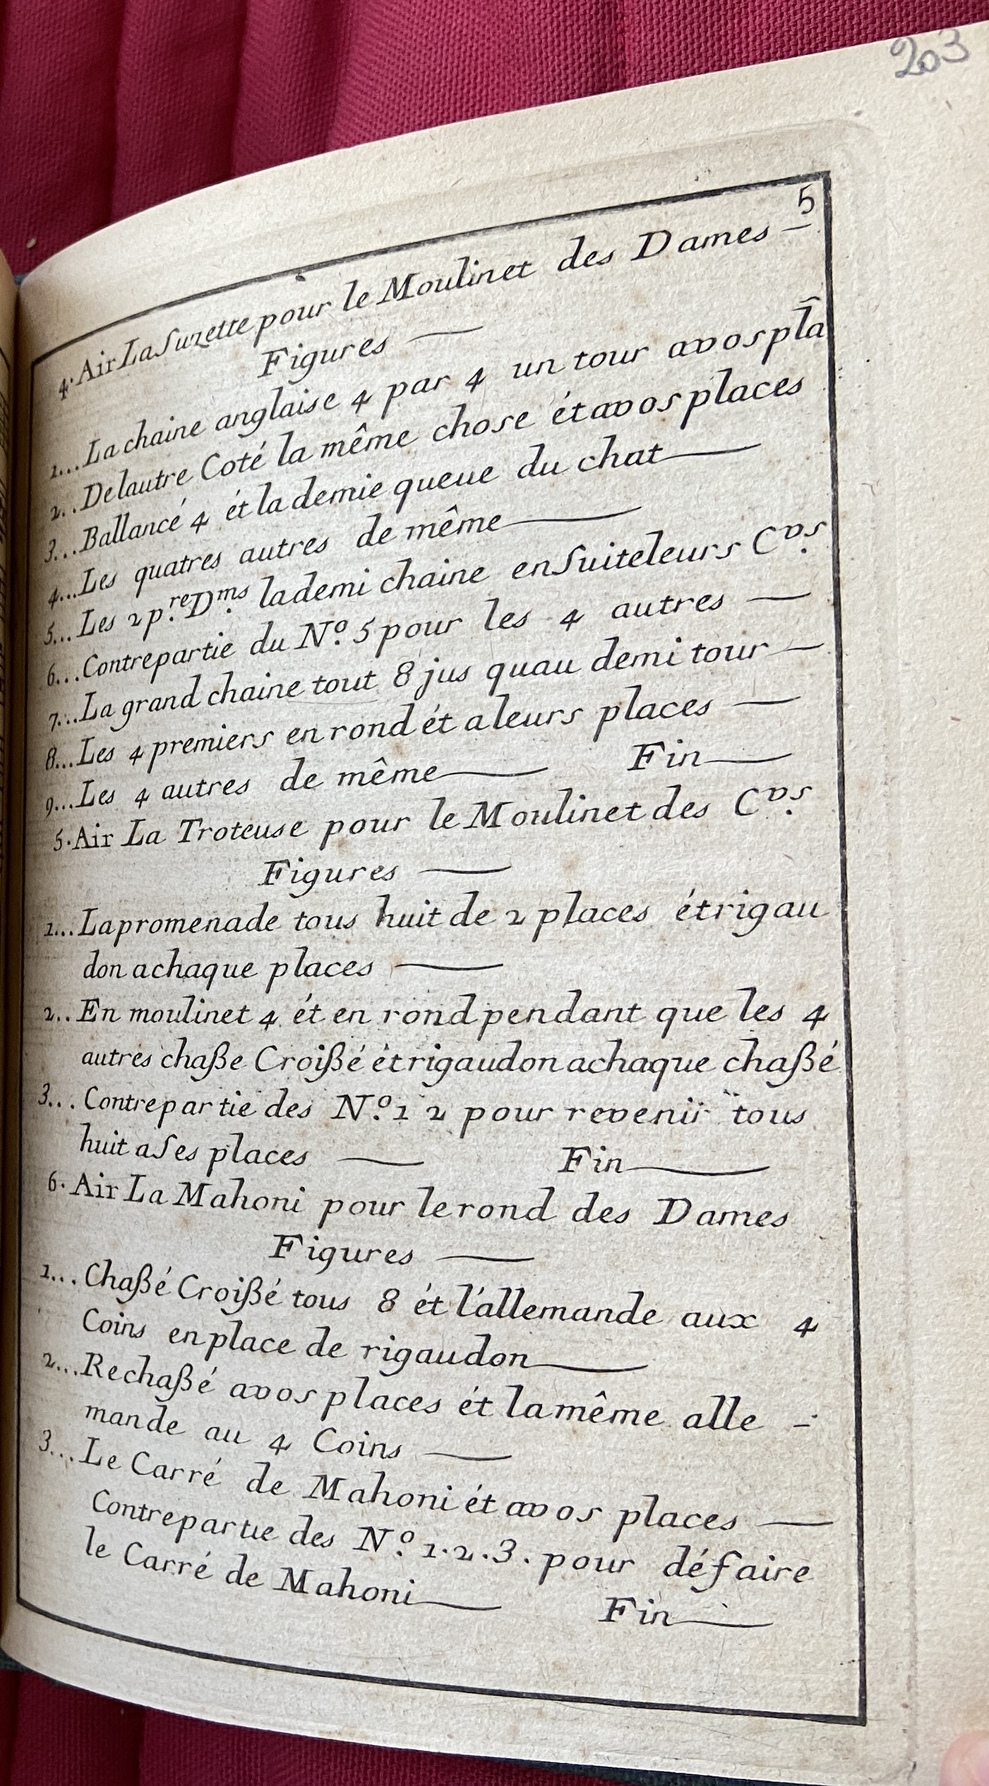 203
5
4. Air La Suzette pour le Moulinet des Dames –
Figures —
1... La chaine anglaise 4 par 4 un tour a vos pla
2.. De lautre Coté la même chose ét a vos places
3... Ballancé 4 ét la demie queue du chat —
4... Les quatres autres de même —
5... Les 2 p.re D.ms la demi chaine en Suite leurs C.vs
6... Contrepartie du N.o 5 pour les 4 autres —
7... La grand chaine tout 8 jus quau demi tour —
8... Les 4 premiers en rond ét a leurs places —
9... Les 4 autres de même — Fin —
5. Air La Troteuse pour le Moulinet des C.vs
Figures —
1... La promenade tous huit de 2 places ét rigau
don a chaque places —
2.. En moulinet 4 ét en rond pendant que les 4
autres chaßé Croißé èt rigaudon a chaque chaßé
3... Contrepartie des N.o 1 2 pour revenir tous
huit a Ses places — Fin —
6. Air La Mahoni pour le rond des Dames
Figures —
1... Chaßé Croißé tous 8 ét l'allemande aux 4
Coins en place de rigaudon —
2... Rechaßé a vos places ét la même alle –
mande au 4 Coins —
3... Le Carré de Mahoni ét a vos places —
Contrepartie des N.o 1.2.3. pour défaire
le Carré de Mahoni — Fin —